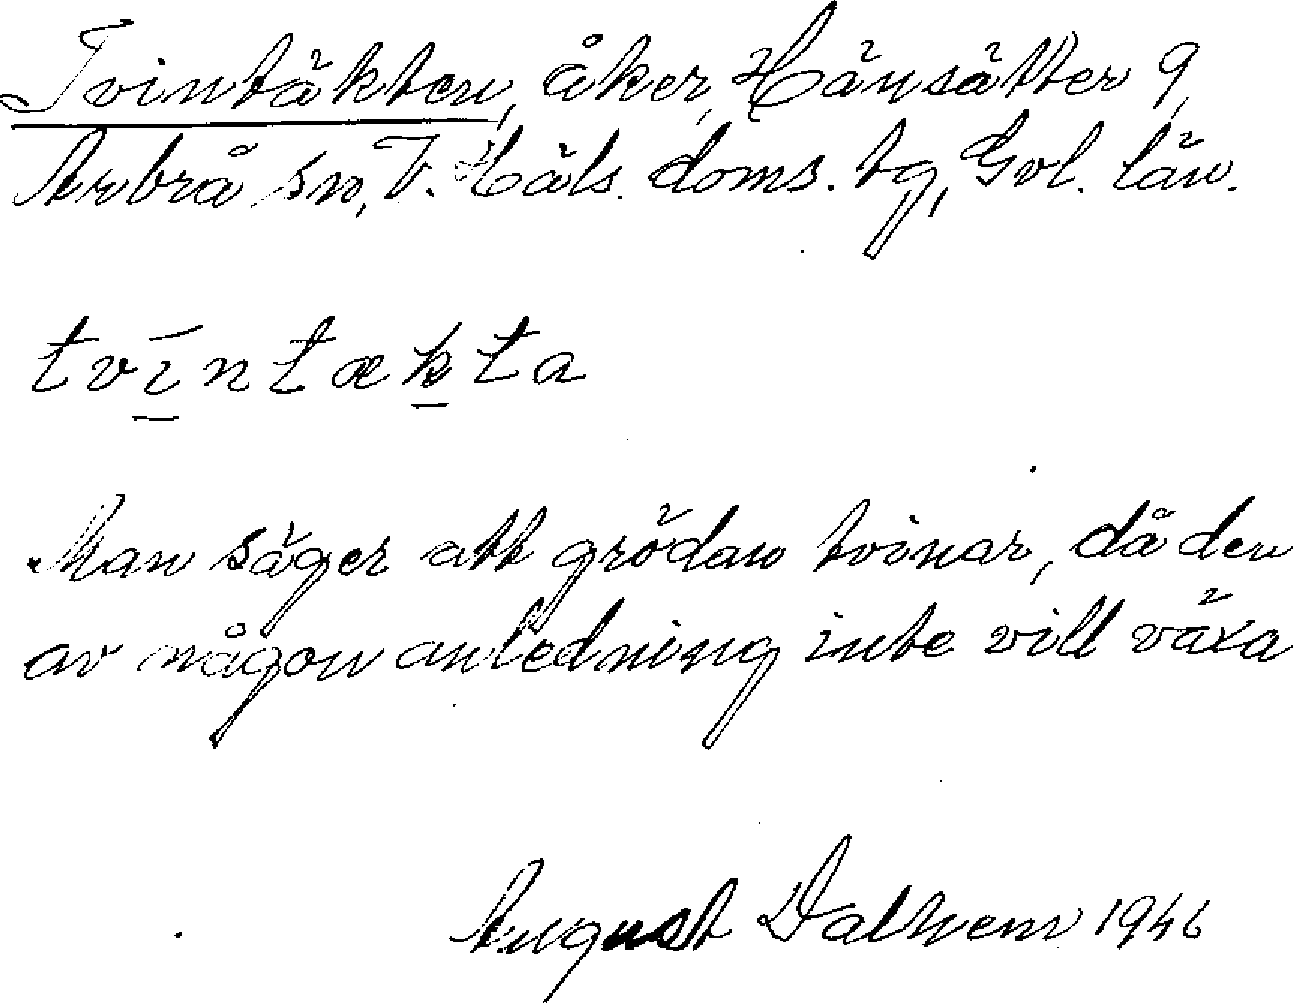 Tvintäkten, åker, Hänsätter 9,
Arbrå sn, V. Häls. doms. tg, Gvl. län.
tvī̱ntæḵta
Man säger att grödan tvinar, då den
av någon anledning inte vill växa
August Dalhem 1946